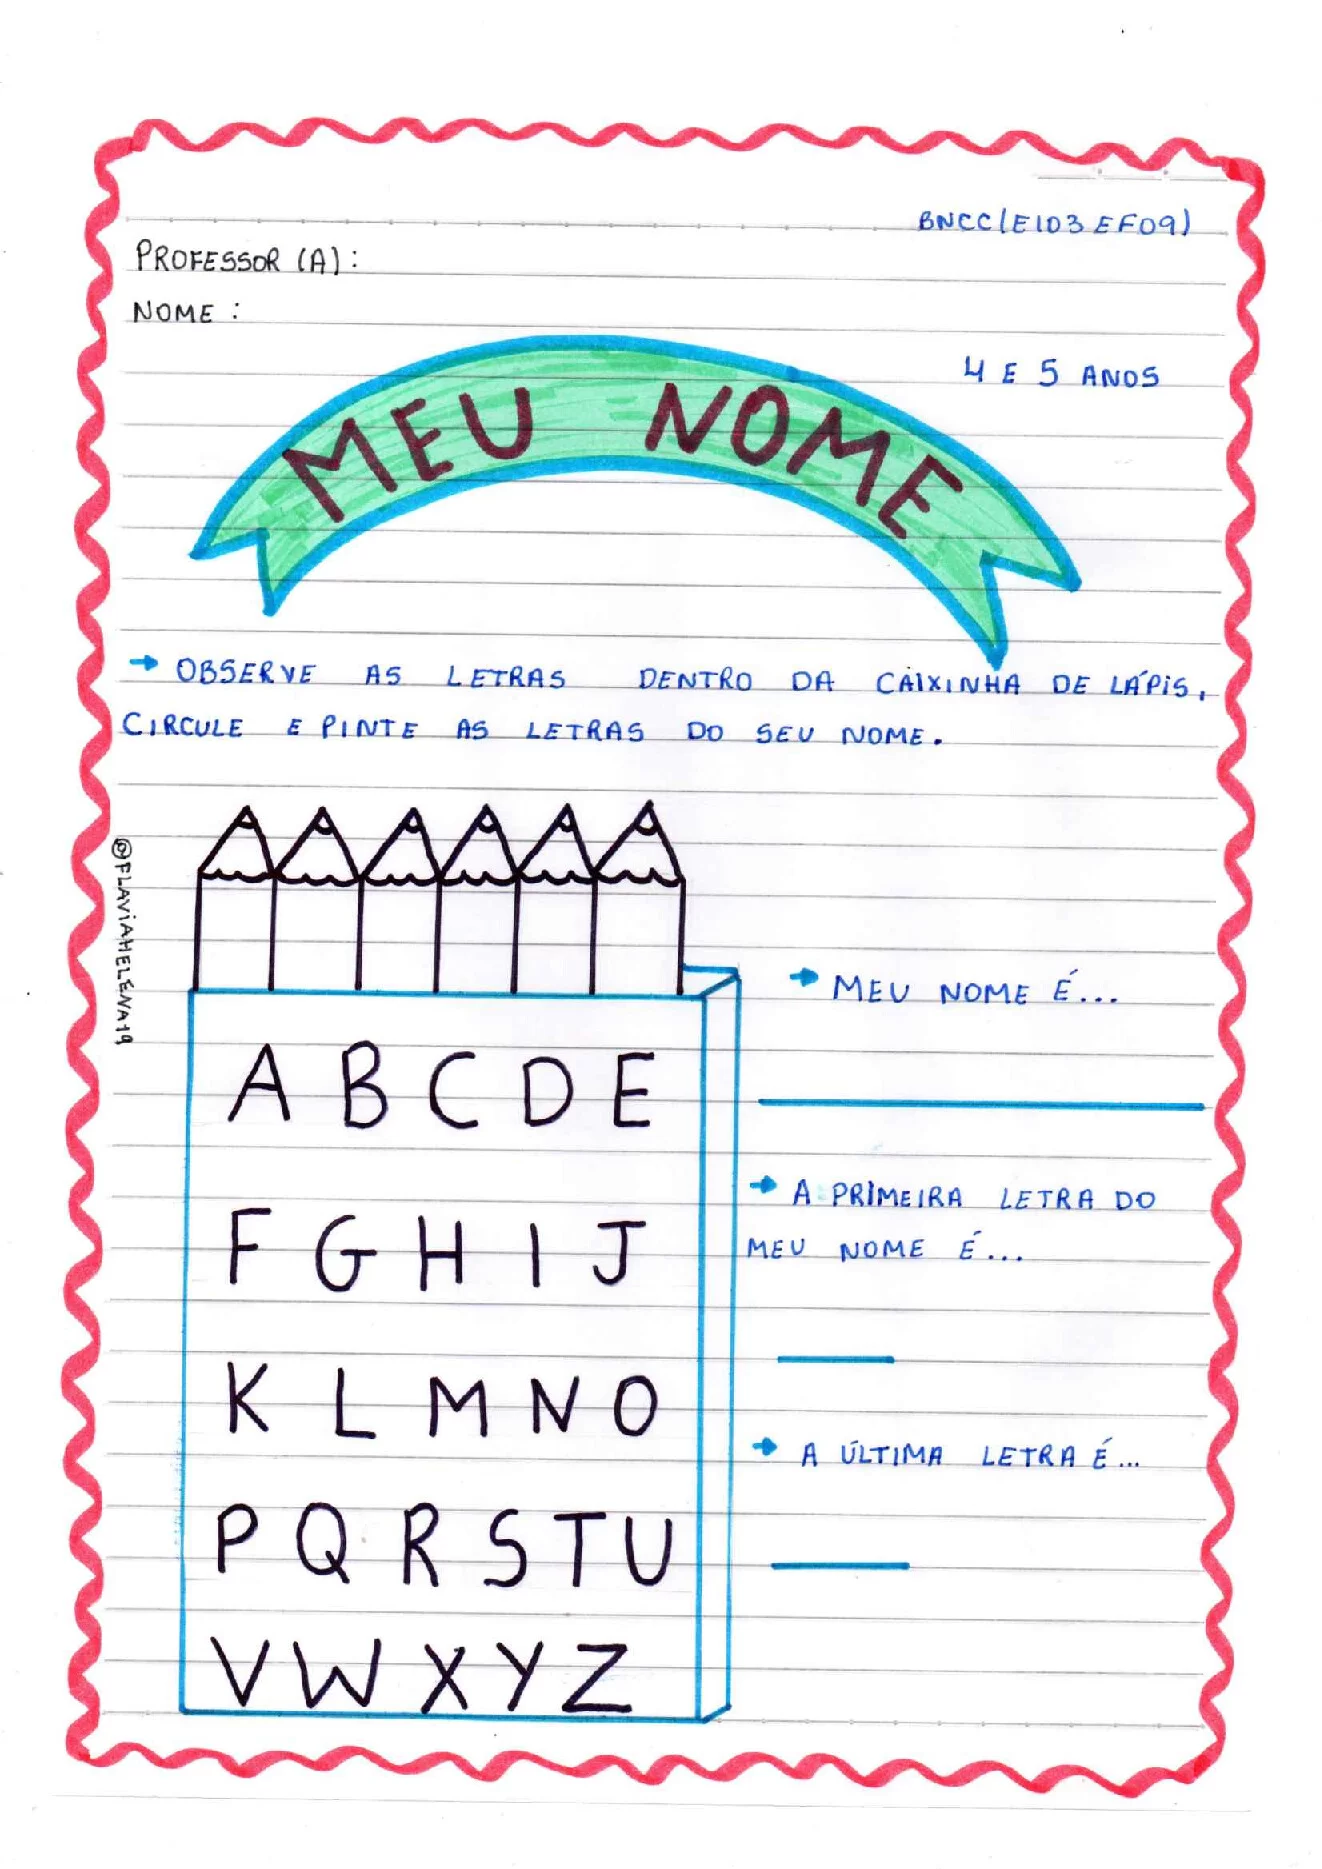 BNCC(EI03EF09)
PROFESSOR (A):
NOME :
4 E 5 ANOS
MEU NOME
→ OBSERVE AS LETRAS DENTRO DA CAIXINHA DE LÁPIS,
CIRCULE E PINTE AS LETRAS DO SEU NOME.
@FLAVIAHELENA19
→ MEU NOME É...
A B C D E
→ A PRIMEIRA LETRA DO
MEU NOME É...
F G H I J
K L M N O
→ A ÚLTIMA LETRA É...
P Q R S T U
V W X Y Z